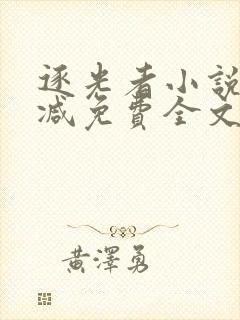 逐光者小說
減免費全文
黃澤勇